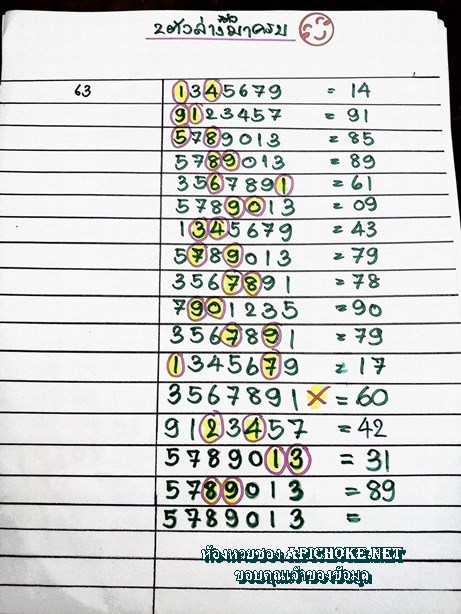 2ตัวล่างชัวมาครบ
63 1345679 = 14
9123457 = 91
5789013 = 85
5789013 = 89
3567891 = 61
5789013 = 09
1345679 = 43
5789013 = 79
3567891 = 78
7901235 = 90
3567891 = 79
1345679 = 17
3567891 × = 60
9123457 = 42
5789013 = 31
5789013 = 89
5789013 =
ห้องหวยซอง APICHOKE.NET
ขอบคุณเจ้าของข้อมูล